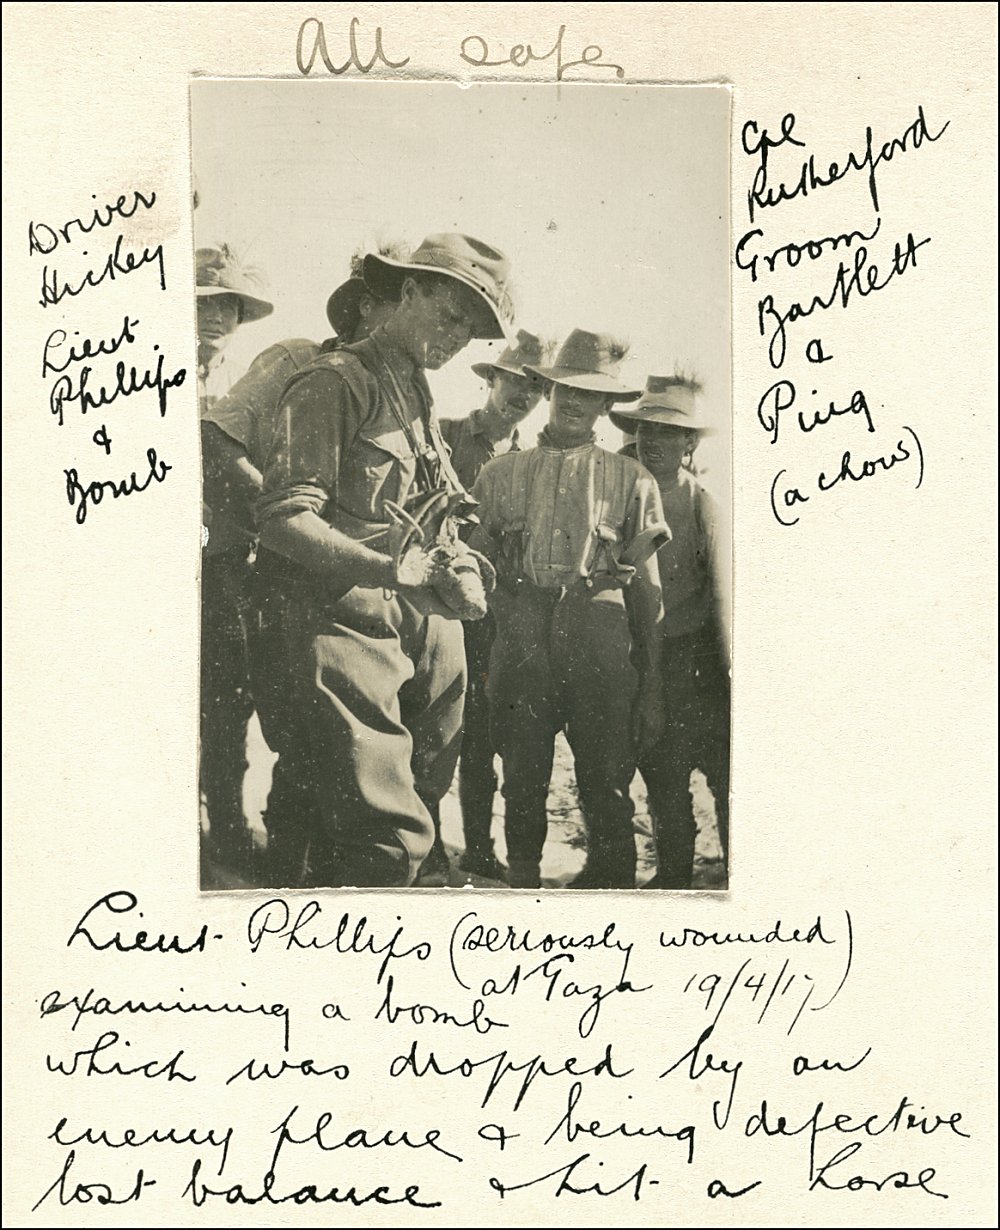 All safe
Driver
Hickey
Lieut.
Phillips
&
Bomb
Cpl
Rutherford
Groom
Bartlett
&
Ping
(a chow)
Lieut. Phillips (seriously wounded)
at Gaza 19/4/17)
examining a bomb
which was dropped by an
enemy plane & being defective
lost balance & hit a horse